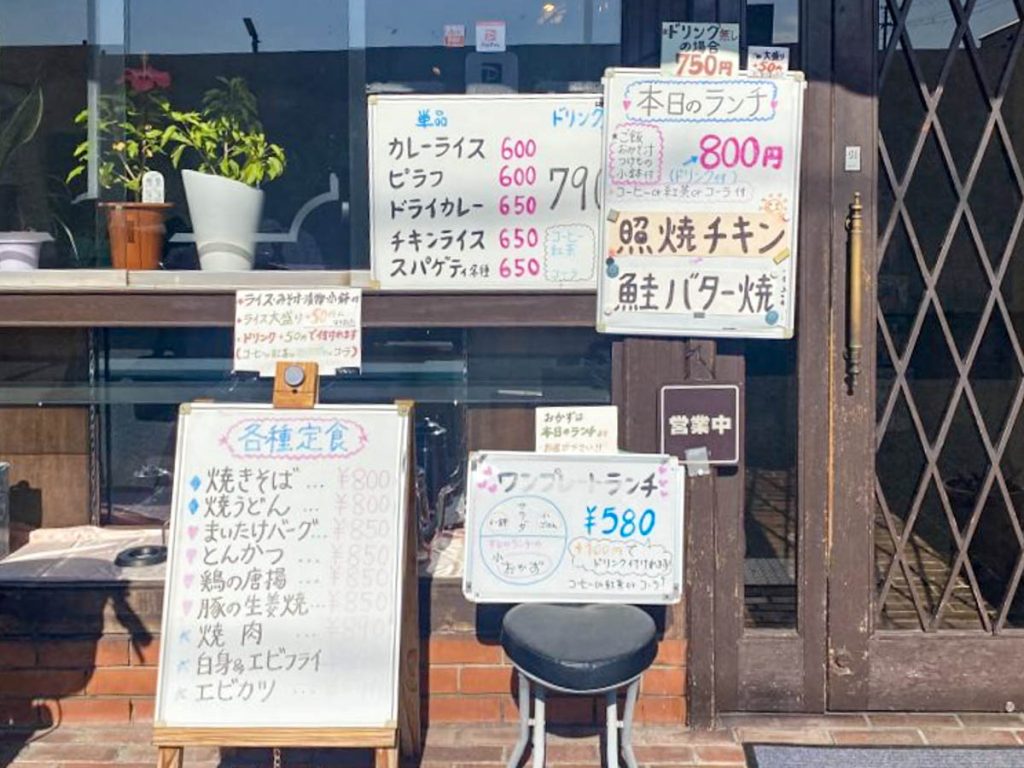 ドリンク無し
の場合
750円
大盛り
+50円
本日のランチ
ご飯
おみそ汁
つけもの
小鉢付
800円
(ドリンク付)
コーヒーor紅茶orコーラ付
照焼チキン
鮭バター焼
単品
ドリンク
カレーライス 600
ピラフ 600
ドライカレー 650
チキンライス 650
スパゲティ各種 650
790
コーヒー
紅茶
コーラ
・ライス・みそ汁・漬物・小鉢付
・ライス大盛り+50円
・ドリンク+50円で付けれます
各種定食
焼きそば … ¥800
焼うどん … ¥800
まいたけバーグ … ¥850
とんかつ … ¥850
鶏の唐揚 … ¥850
豚の生姜焼 … ¥850
焼肉 … ¥890
白身&エビフライ
エビカツ …
営業中
おかずは
本日のランチより
お選び下さい!!
ワンプレートランチ
¥580
小鉢
サラダ
小ごはん
本日のランチの
小おかず
+100円で
ドリンク付けれます
コーヒーor紅茶orコーラ!